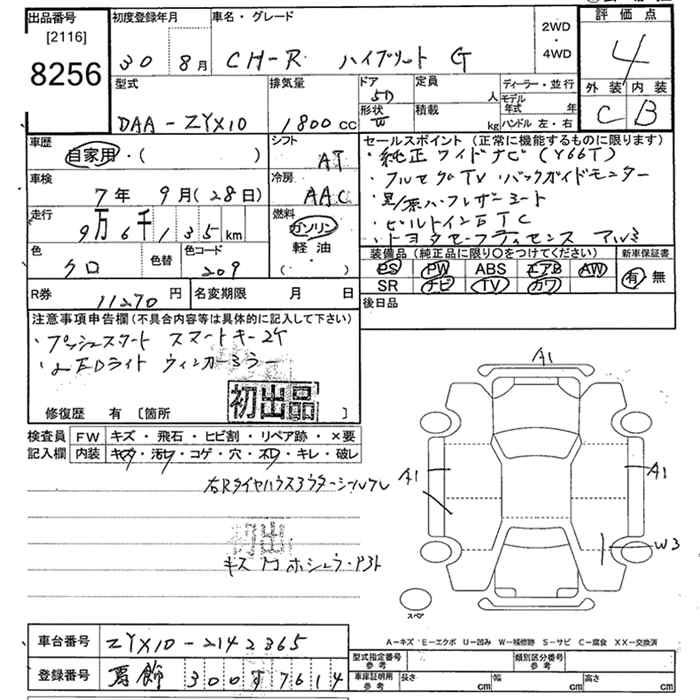 出品番号
[2116]
8256
初度登録年月
30 8月
車名・グレード
CH-R ハイブリット G
2WD
・
4WD
評価点
4
外装 内装
C B
型式
DAA-ZYX10
排気量
1800cc
ドア
5D
形状
定員
人
積載
kg
ディーラー・並行
モデル年式 年
ハンドル 左・右
車歴
自家用・( )
シフト
AT
セールスポイント (正常に機能するものに限ります)
・純正ワイドナビ(Y66T)
・フルセグTV バックガイドモニター
・黒/茶ハーフレザーシート
・ビルトインETC
・トヨタセーフティセンス アルミ
車検
7年 9月(28日)
冷房
AAC
走行
9万6千135km
燃料
ガソリン
軽油
( ・ )
色
クロ
色替
色コード
209
装備品 (純正品に限り○をつけてください)
PS PW ABS エアB AW
SR ナビ TV カワ
新車保証書
有 無
R券
11270円
名変期限 月 日
後日品
注意事項申告欄(不具合内容等は具体的に記入して下さい)
・プッシュスタート スマートキー2ケ
・LEDライト ウィンカーミラー
初出品
修復歴 有 [箇所 ]
検査員
記入欄
FW キズ・飛石・ヒビ割・リペア跡・×要
内装 キズ・汚レ・コゲ・穴・スレ・キレ・破レ
初出
A1
A1
A1
W3
スペア
A-キズ・E-エクボ U-凹み W-補修跡 S-サビ C-腐食 XX-交換済
車台番号
ZYX10-2142365
登録番号
300 7614
型式指定番号
参考
類別区分番号
参考
車庫証明用
参考
長さ cm 幅 cm 高さ cm